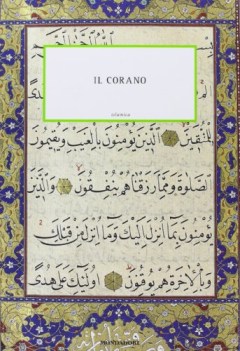 IL CORANO
islamica
لِلْمُتَّقِينَ الَّذِينَ يُؤْمِنُونَ بِالْغَيْبِ وَيُقِيمُونَ
الصَّلٰوةَ وَمِمَّا رَزَقْنَاهُمْ يُنْفِقُونَ وَالَّذِينَ
يُؤْمِنُونَ بِمَا اُنْزِلَ اِلَيْكَ وَمَا اُنْزِلَ مِنْ قَبْلِكَ
وَبِالْاٰخِرَةِ هُمْ يُوقِنُونَ اُولٰئِكَ عَلٰى هُدًى
MONDADORI